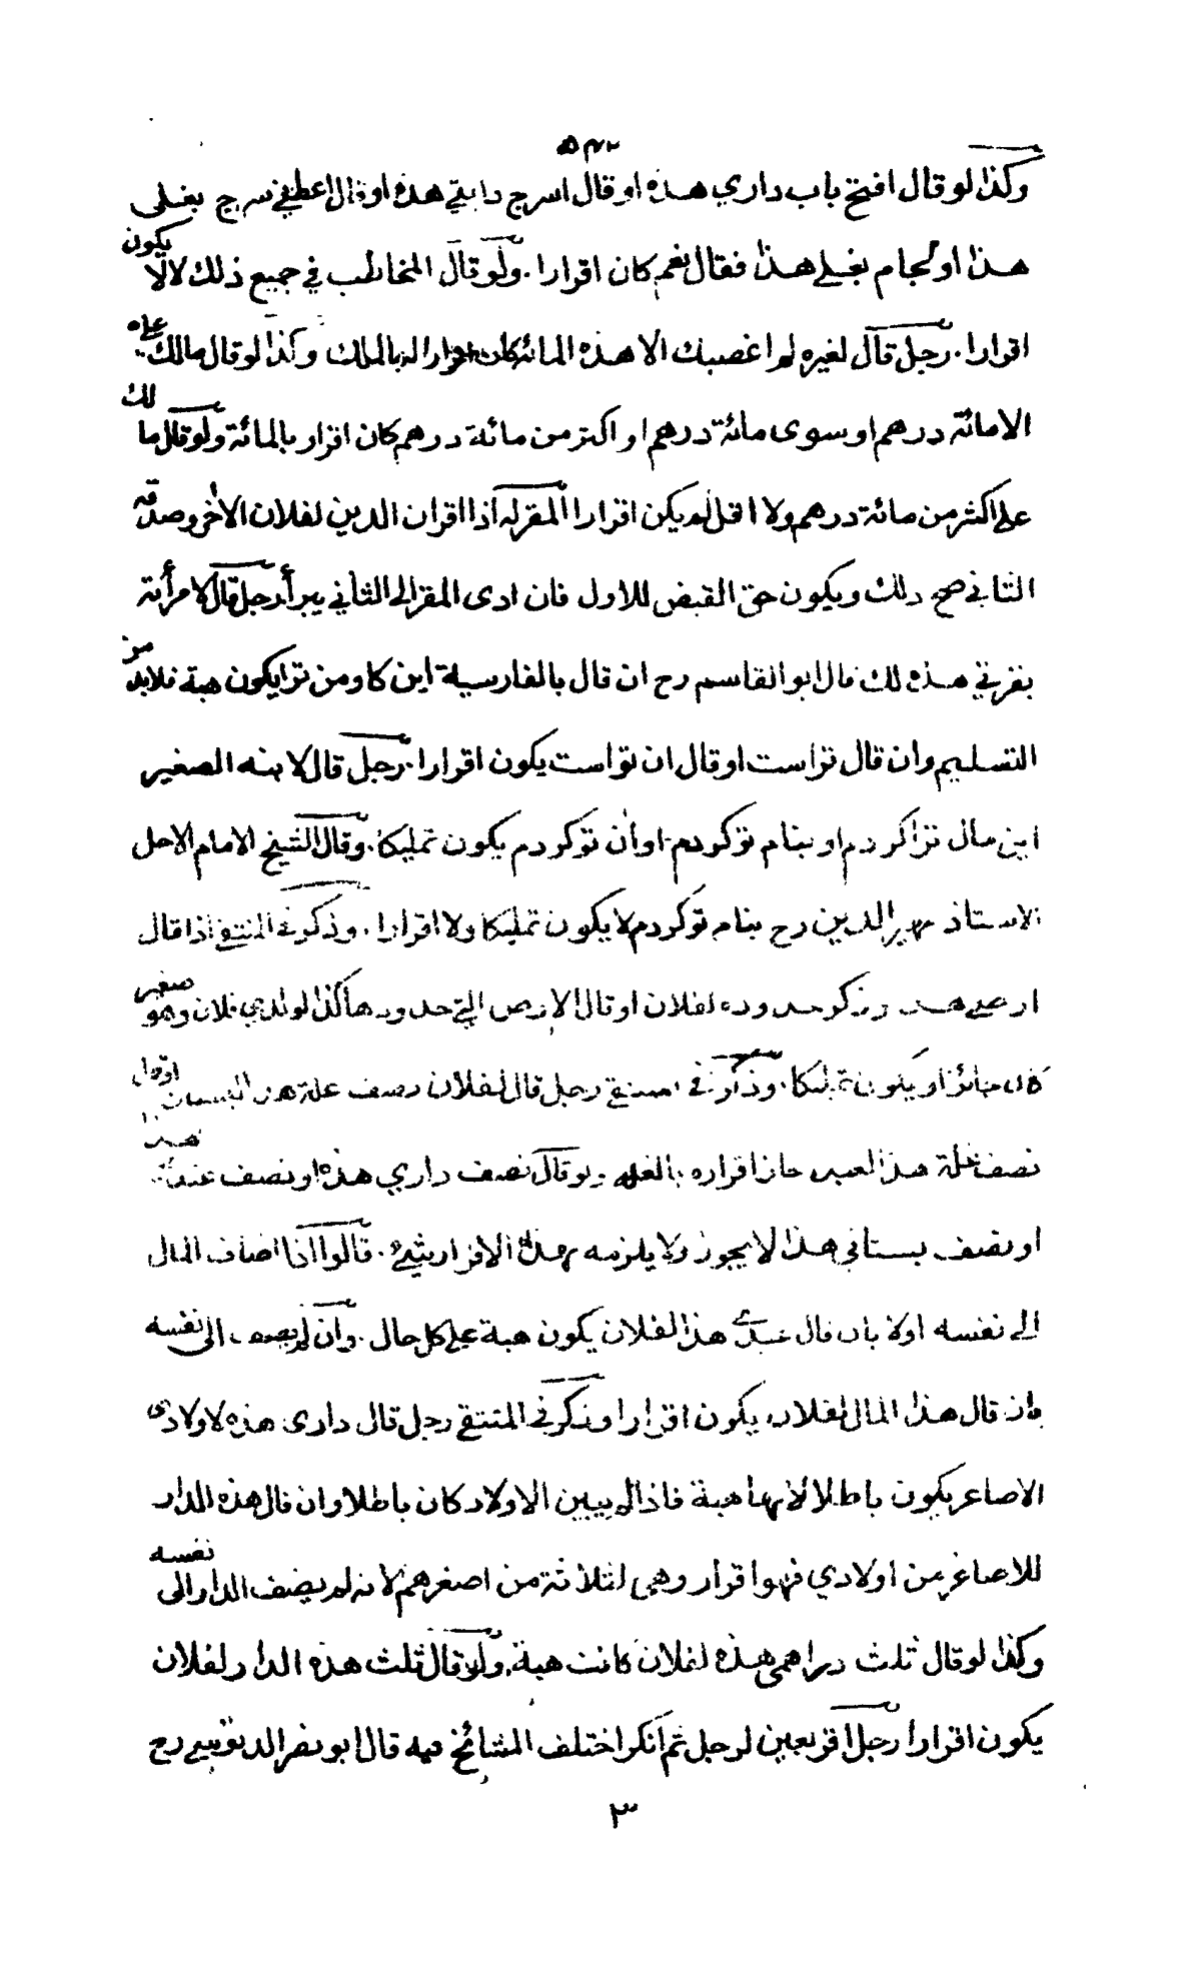 ٥٤٢
وكذا لو قال افتح باب داري هذه او قال اسرج دابتي هذه او قال اعطني سرج بغلي
هذا او لجام بغلي هذا فقال نعم كان اقرارا. ولو قال المخاطب في جميع ذلك لا لا يكون
اقرارا. رجل قال لغيره لم اغصبك الا هذه المائة كان اقرارا له بالملك وكذا لو قال مالك عليه
الا مائة درهم او سوى مائة درهم او اكثر من مائة درهم كان اقرار بالمائة ولو قال ما لك
علي اكثر من مائة درهم ولا اقل لم يكن اقرارا المقر له اذا اقر ان الدين لفلان الاخر وصدقه
الثاني صح ذلك ويكون حق القبض للاول فان ادى المقر الى الثاني يبرأ رجل قال لامرأته
بقرتي هذه لك قال ابو القاسم رح ان قال بالفارسية اين كاو من ترا يكون هبة فلابد من
التسليم وان قال تراست او قال ان تواست يكون اقرارا. رجل قال لابنه الصغير
اين مال ترا كردم او بنام تو كردم او ان تو كردم يكون تمليكا. وقال الشيخ الامام الاجل
الاستاذ ظهير الدين رح بنام تو كردم لا يكون تمليكا ولا اقرارا. وذكر في المنتقى اذا قال
ارضي هذه وذكر حدوده لفلان او قال الارض التي حدودها كذا لولدي فلان وهو صغير
كان جائزا ويكون تمليكا. وذكر في المنتقى رجل قال لفلان نصف غلة هذا البستان او قال
نصف غلة هذا العبد جاز اقراره بالغلة ولو قال نصف داري هذه او نصف عبدي هذا
او نصف بستاني هذا لا يجوز ولا يلزمه بهذا الاقرار شيء. قالوا اذا اضاف المال
الى نفسه اولا بان قال عبدي هذا لفلان يكون هبة على كل حال. وان لم يضف الى نفسه
بان قال هذا المال لفلان يكون اقرارا وذكر في المنتقى رجل قال دارى هذه لاولادى
الاصاغر يكون باطلا لانها هبة فاذا لم يبين الاولاد كان باطلا وان قال هذه الدار
للاصاغر من اولادي فهو اقرار وهي لثلاثة من اصغرهم لانه لم يضف الدار الى نفسه
وكذا لو قال ثلث دراهمى هذه لفلان كانت هبة. ولو قال ثلث هذه الدار لفلان
يكون اقرارا رجل اقر بعين لرجل ثم انكر اختلف المشائخ فيه قال ابو نصر الدبوسي رح
٣